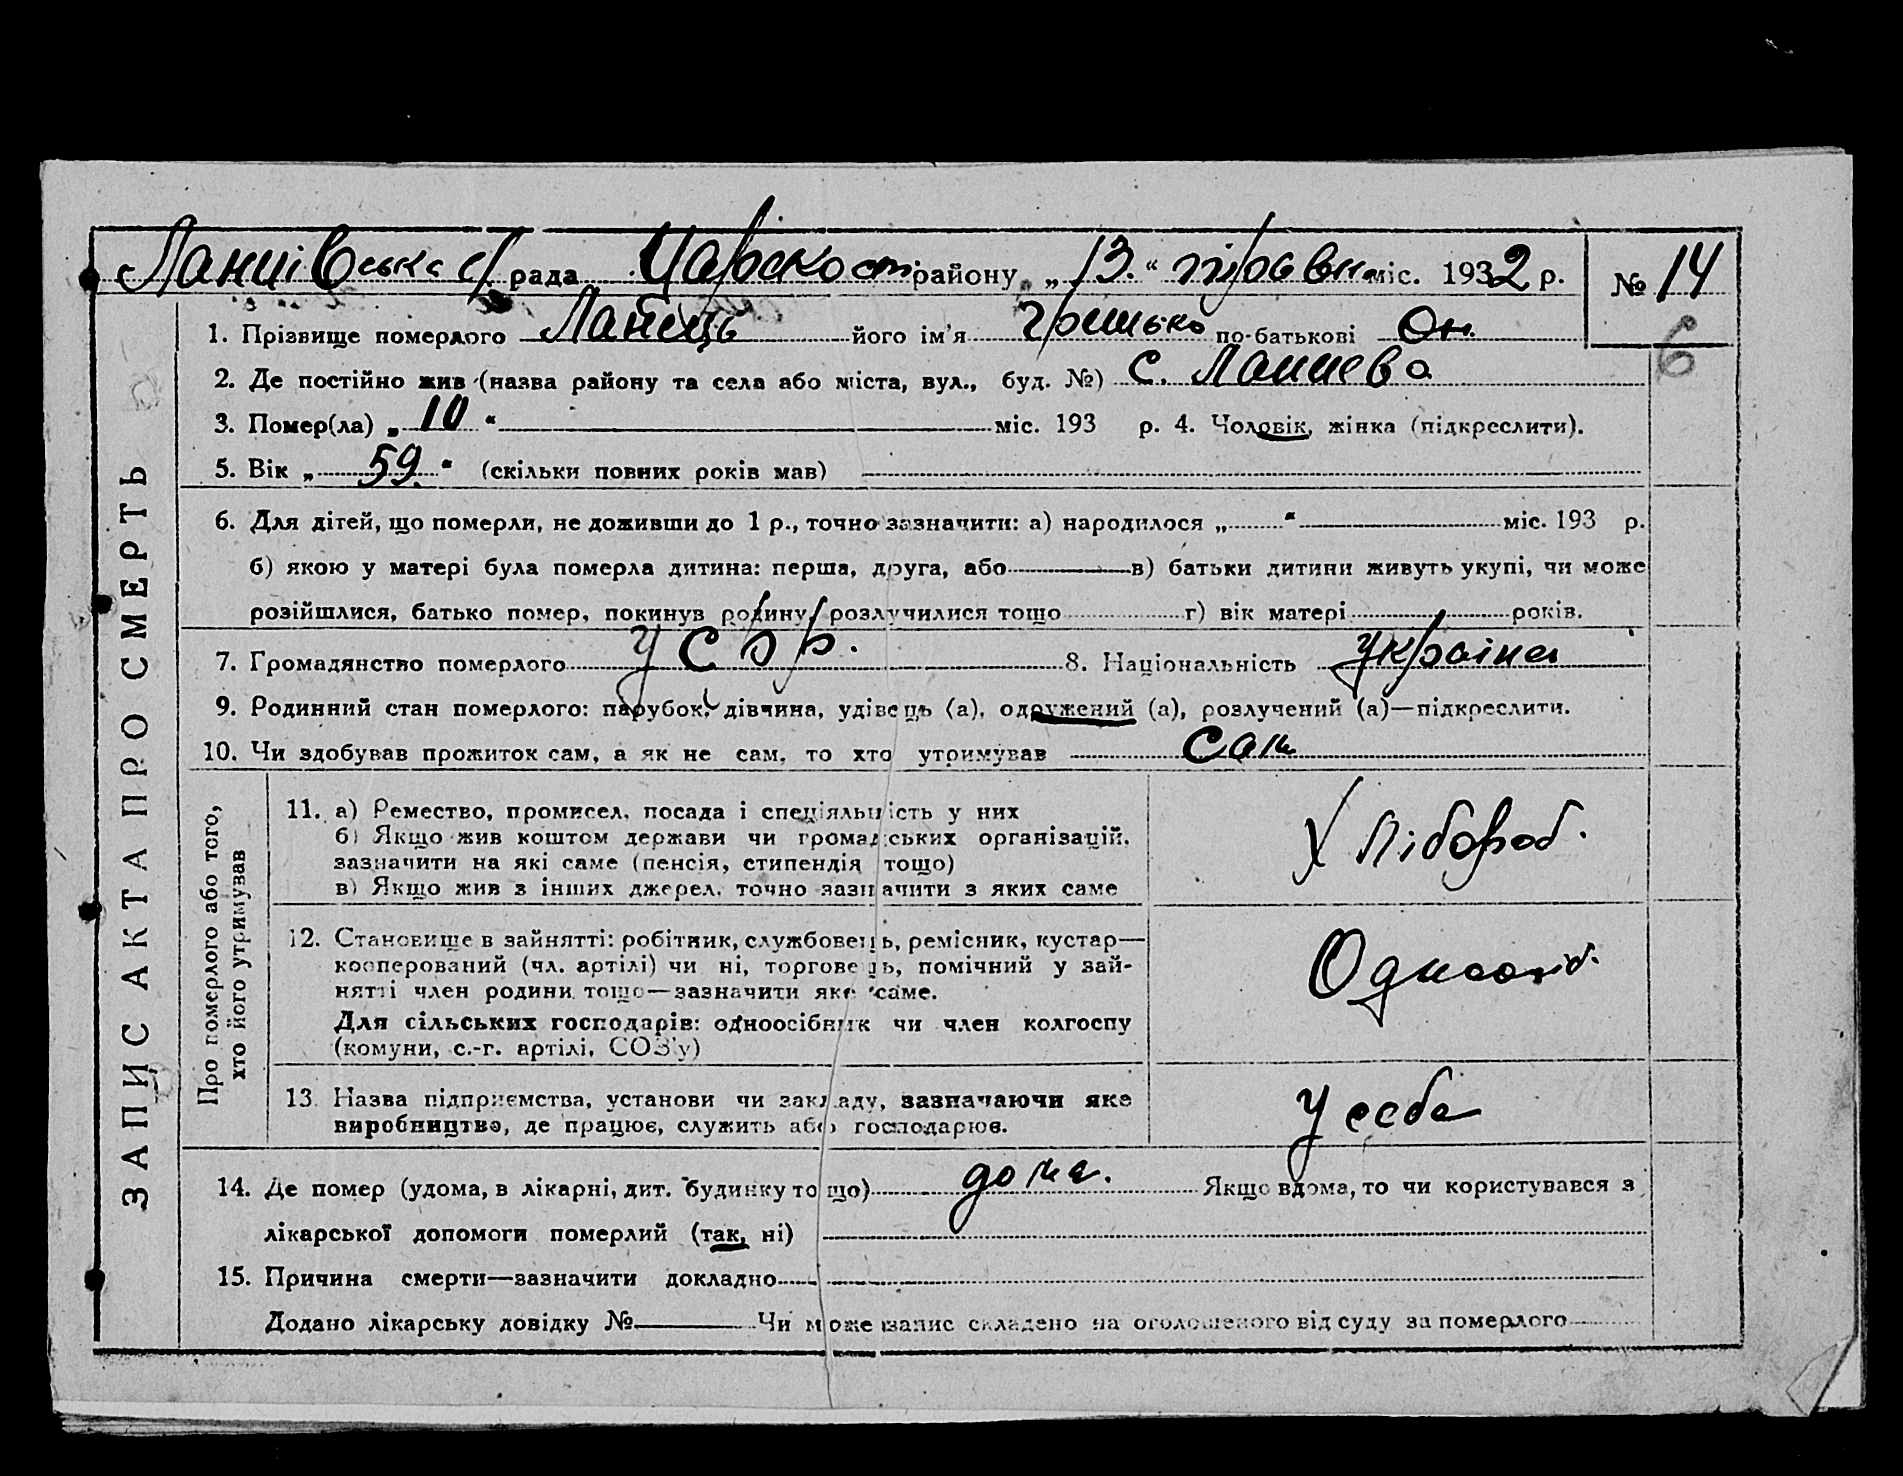 ЗАПИС АКТА ПРО СМЕРТЬ
Ланнівська с/рада Царськост. району „13.“ травн. міс. 1932 р. № 14
6
1. Прізвище померлого його ім'я Грицько по-батькові Он.
2. Де постійно жив (назва району та села або міста, вул., буд. №) с.
3. Помер(ла) „10“ міс. 193 р. 4. Чоловік, жінка (підкреслити).
5. Вік „59.“ (скільки повних років мав)
6. Для дітей, що померли, не доживши до 1 р., точно зазначити: а) народилося „ “ міс. 193 р.
б) якою у матері була померла дитина: перша, друга, або в) батьки дитини живуть укупі, чи може
розійшлися, батько помер, покинув родину, розлучилися тощо г) вік матері років.
7. Громадянство померлого УСРР. 8. Національність Українец
9. Родинний стан померлого: парубок, дівчина, удівець (а), одружений (а), розлучений (а)—підкреслити.
10. Чи здобував прожиток сам, а як не сам, то хто утримував сам
Про померлого або того, хто його утримував
11. а) Ремество, промисел, посада і спеціяльність у них
б) Якщо жив коштом держави чи громадських організацій,
зазначити на які саме (пенсія, стипендія тощо)
в) Якщо жив з інших джерел, точно зазначити з яких саме
Хлібороб.
12. Становище в зайнятті: робітник, службовець, ремісник, кустар—
кооперований (чл. артілі) чи ні, торговець, помічний у зай-
нятті член родини тощо—зазначити яке саме.
Для сільських господарів: одноосібник чи член колгоспу
(комуни, с.-г. артілі, СОЗ'у)
Одноосіб.
13. Назва підприємства, установи чи закладу, зазначаючи яке
виробництво, де працює, служить або господарює.
У себе
14. Де помер (удома, в лікарні, дит. будинку тощо) дома. Якщо вдома, то чи користувався з
лікарської допомоги померлий (так, ні)
15. Причина смерти—зазначити докладно
Додано лікарську довідку № Чи може запис складено на оголошеного від суду за померлого